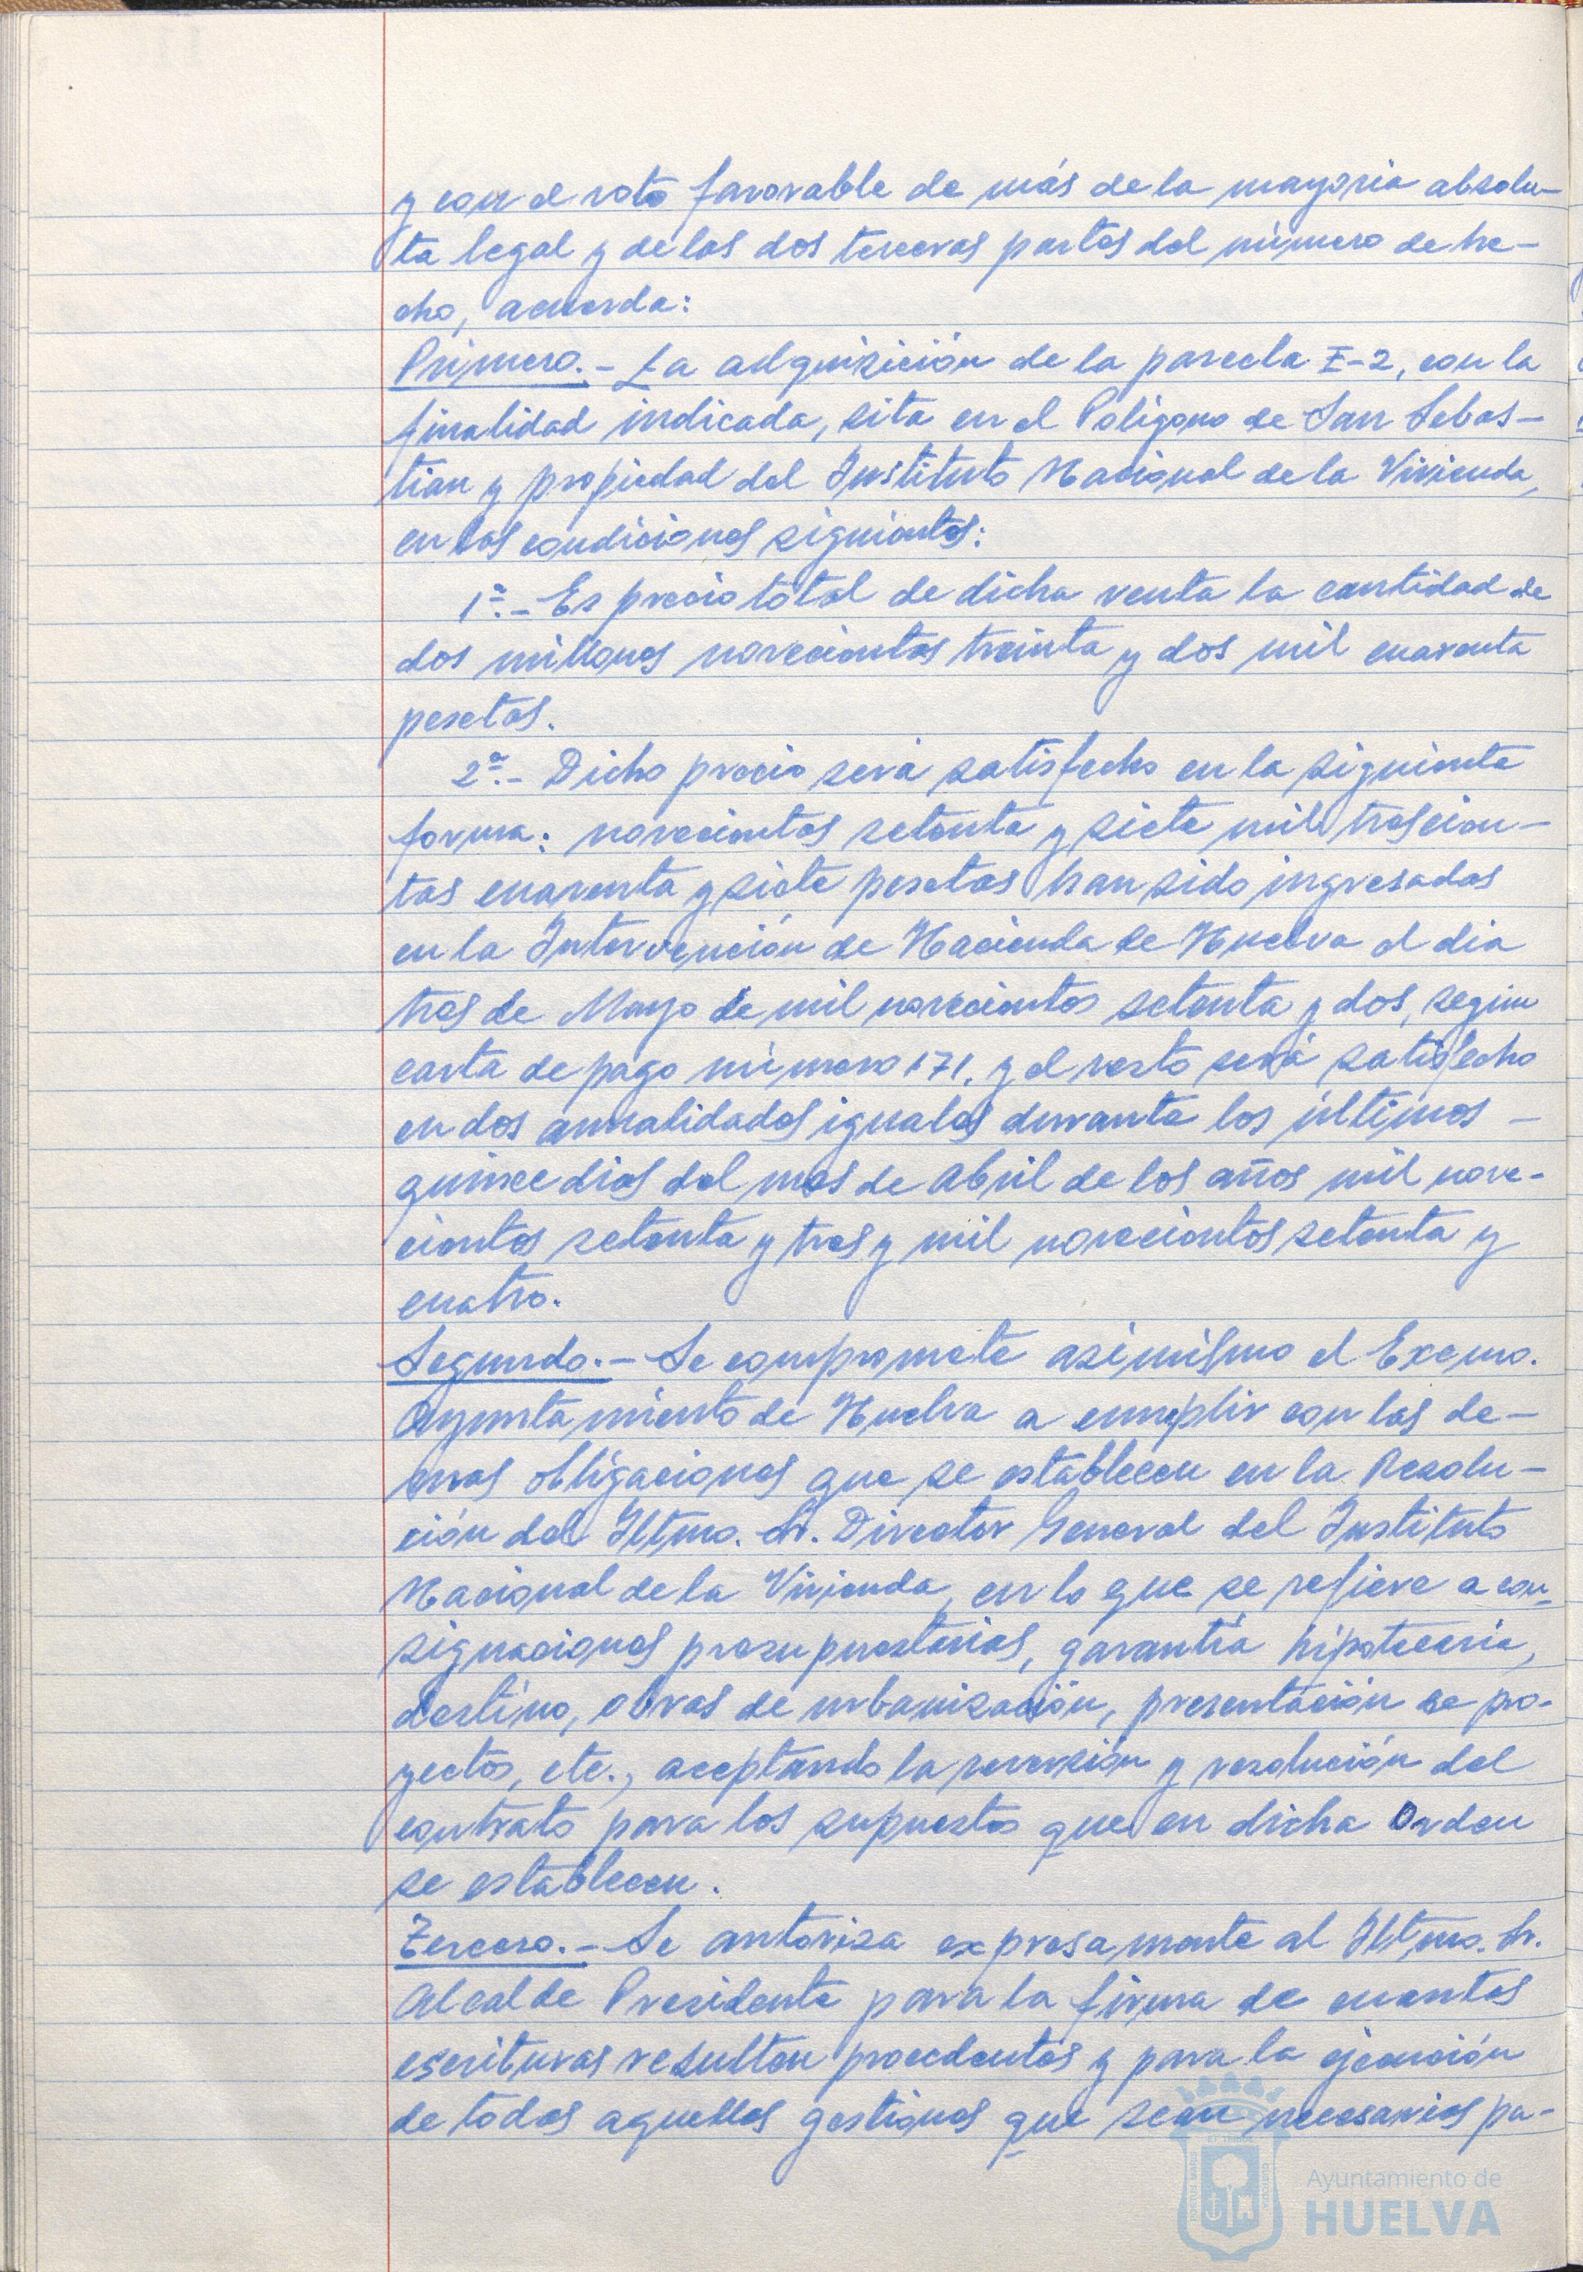 y con el voto favorable de más de la mayoria absolu-
ta legal y de las dos terceras partes del número de he-
cho, acuerda:
Primero.- La adquisición de la parcela E-2, con la
finalidad indicada, sita en el Poligono de San Sebas-
tian y propiedad del Instituto Nacional de la Vivienda,
en las condiciones siguientes:
1ª.- Es precio total de dicha venta la cantidad de
dos millones novecientas treinta y dos mil cuarenta
pesetas.
2ª.- Dicho precio será satisfecho en la siguiente
forma: novecientas setenta y siete mil trescien-
tas cuarenta y siete pesetas han sido ingresadas
en la Intervención de Hacienda de Huelva el dia
tres de Mayo de mil novecientos setenta y dos, según
carta de pago número 171, y el resto será satisfecho
en dos anualidades iguales durante los últimos -
quince dias del mes de Abril de los años mil nove-
cientos setenta y tres y mil novecientos setenta y
cuatro.
Segundo.- Se compromete asimismo el Excmo.
Ayuntamiento de Huelva a cumplir con las de-
mas obligaciones que se establecen en la Resolu-
ción del Iltmo. Sr. Director General del Instituto
Nacional de la Vivienda, en lo que se refiere a con-
signaciones presupuestarias, garantía hipotecaria,
destino, obras de urbanización, presentación de pro-
yectos, etc., aceptando la reversión y resolución del
contrato para los supuestos que en dicha Orden
se establecen.
Tercero.- Se autoriza expresamente al Iltmo. Sr.
Alcalde Presidente para la firma de cuantas
escrituras resulten procedentes y para la ejecución
de todas aquellas gestiones que sean necesarias pa-
Ayuntamiento de
HUELVA